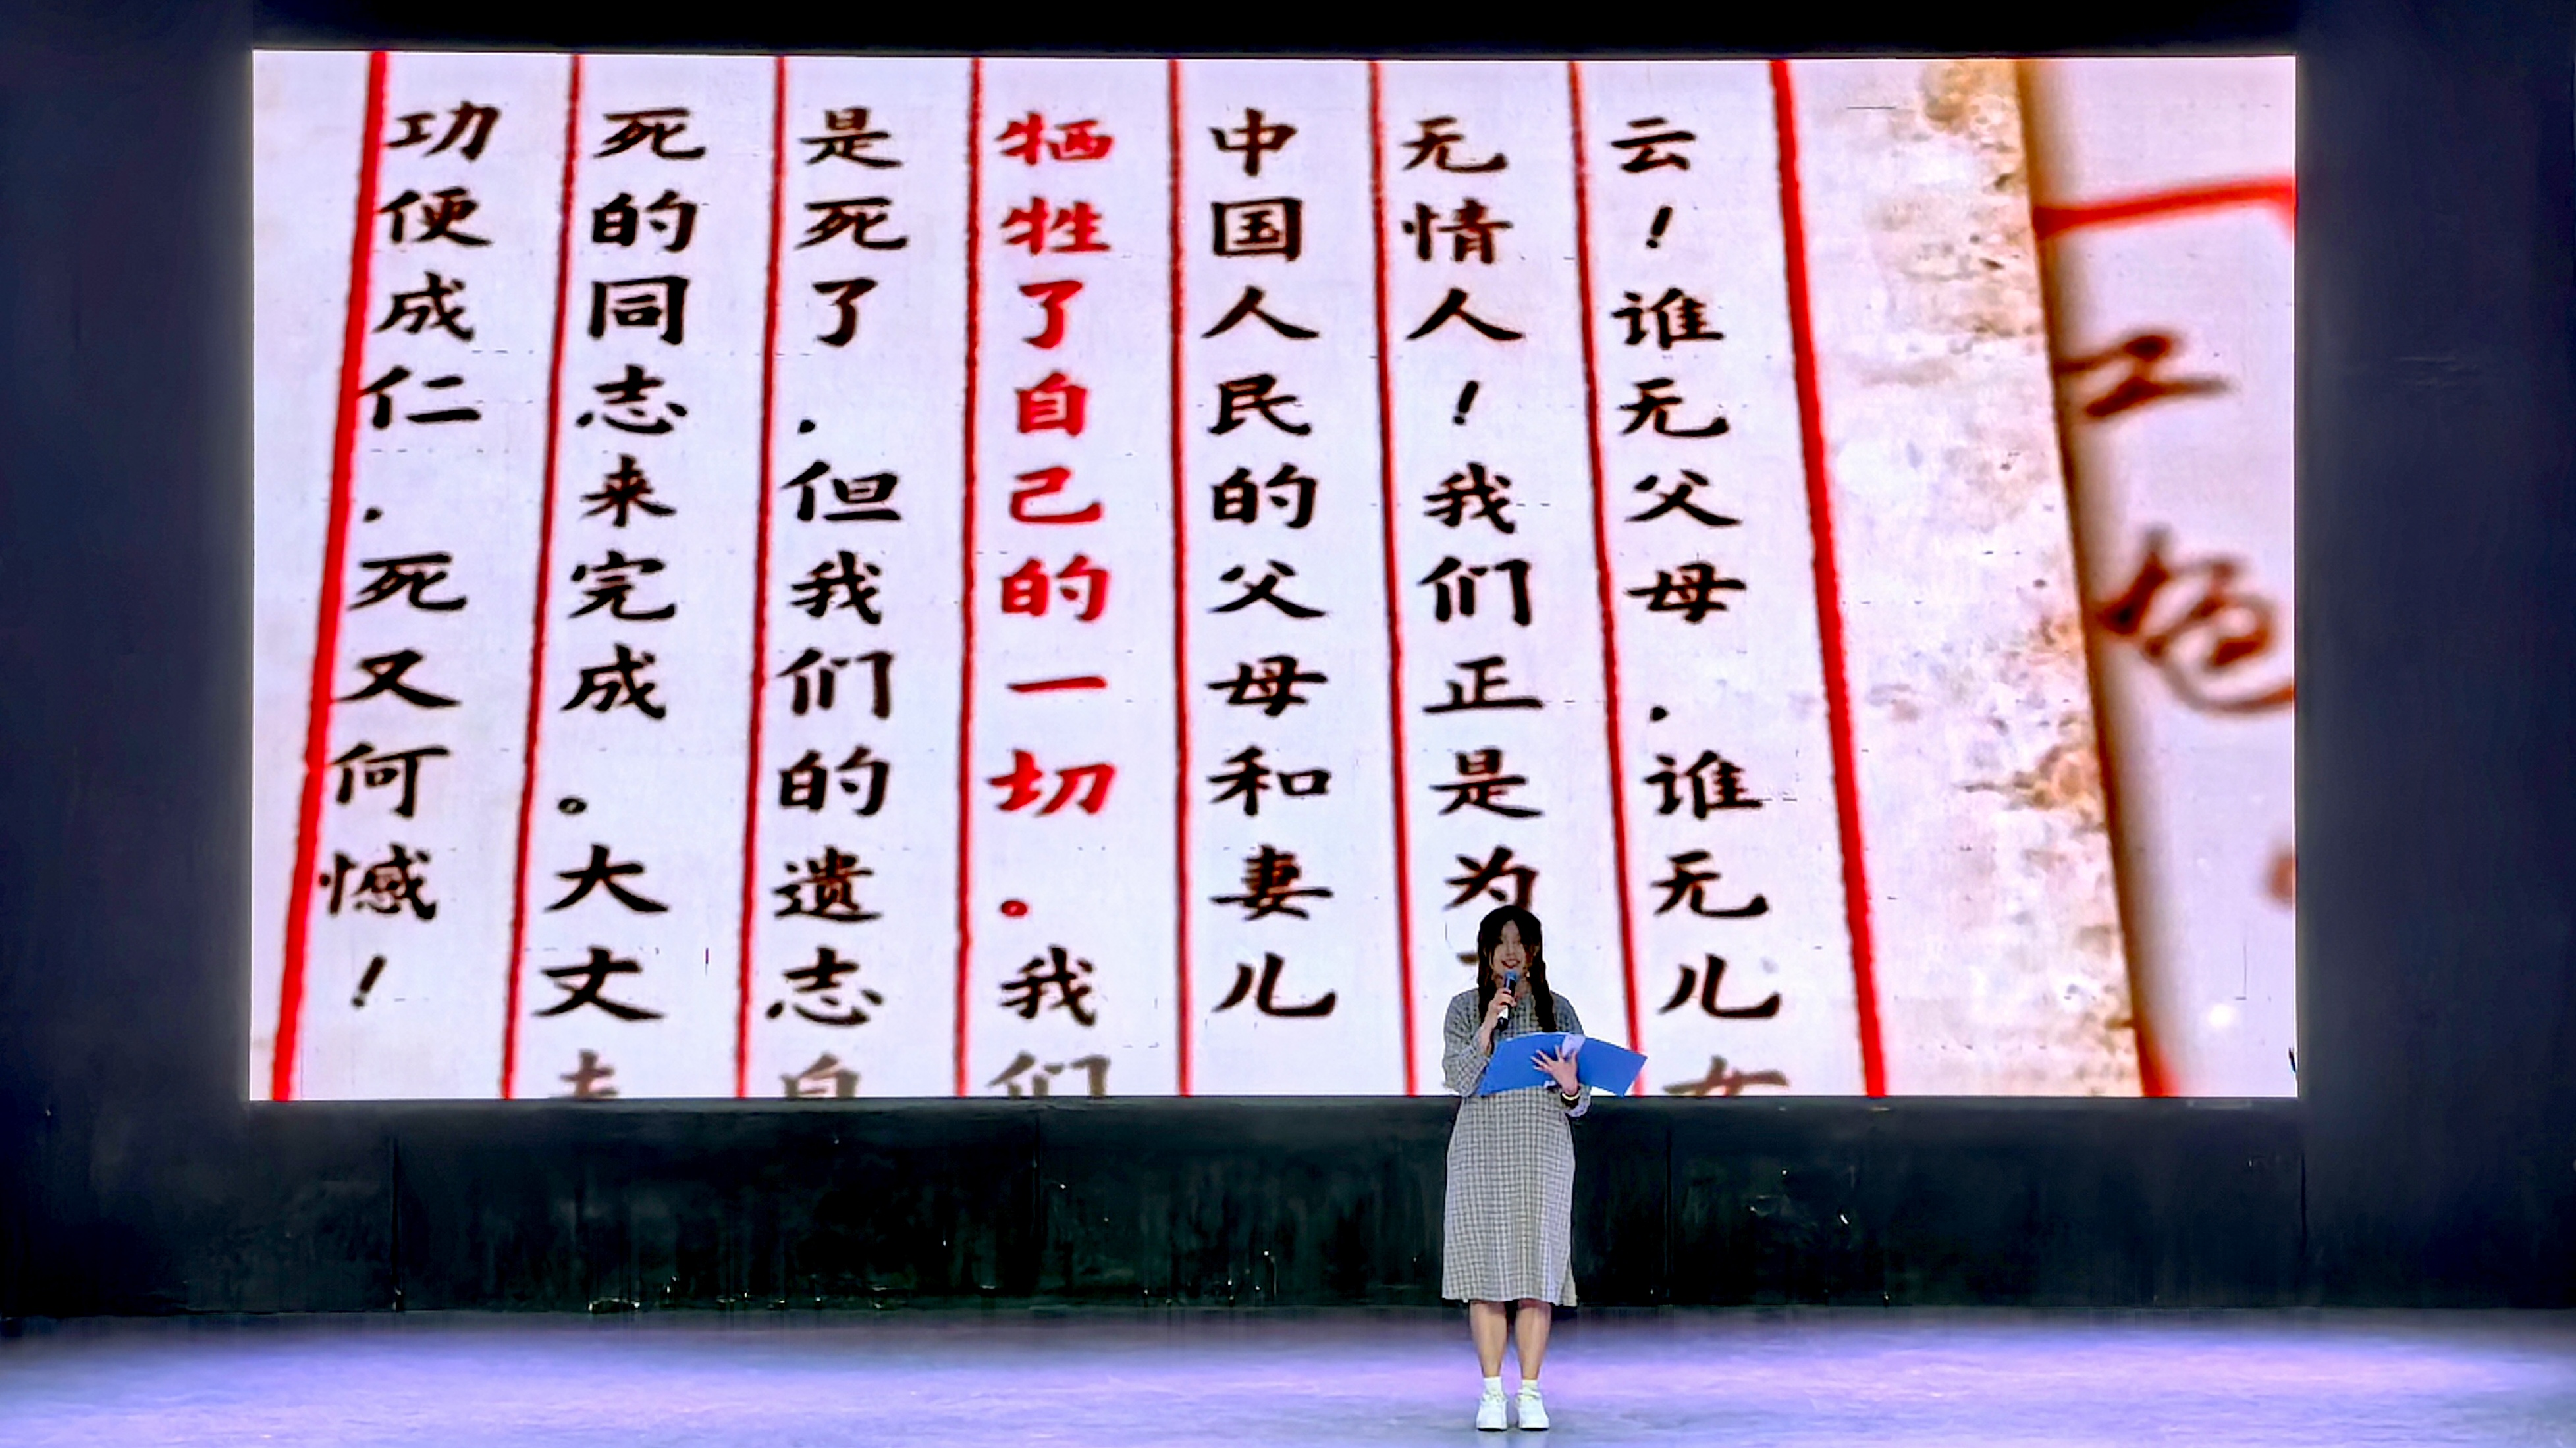 云！谁无父母，谁无儿女
无情人！我们正是为
中国人民的父母和妻儿
牺牲了自己的一切。我们
是死了，但我们的遗志自
死的同志来完成。大丈夫
功便成仁，死又何憾！